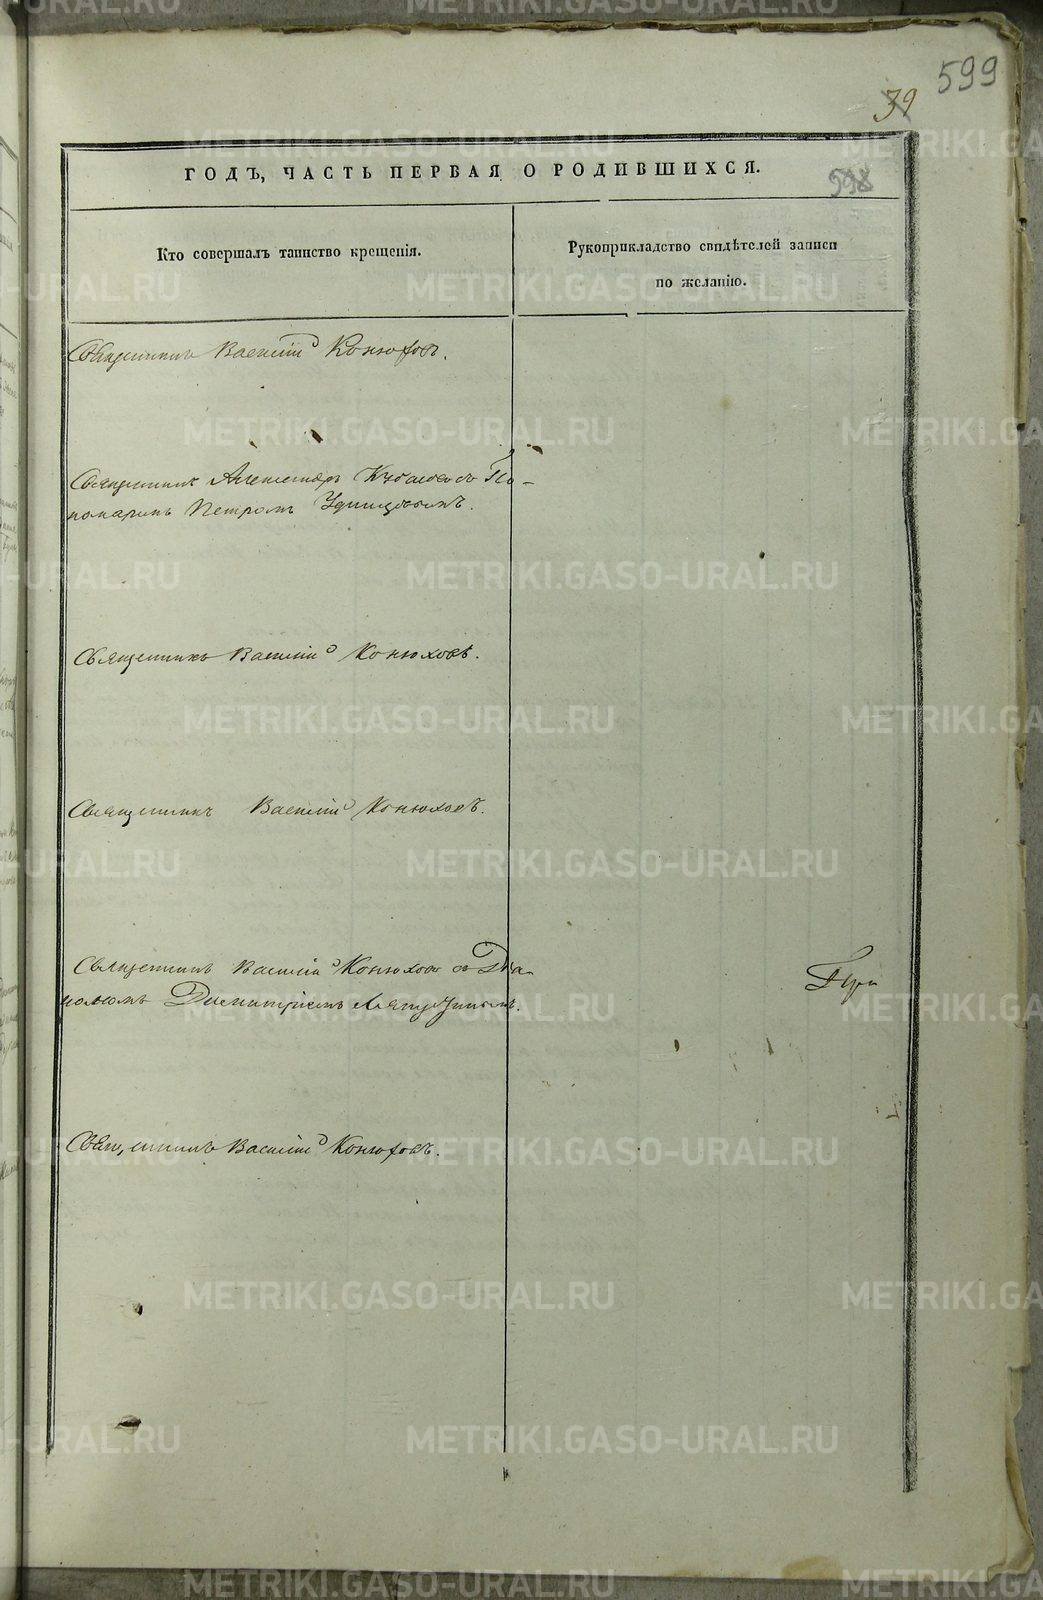 599
39
598
ГОДЪ, ЧАСТЬ ПЕРВАЯ О РОДИВШИХСЯ.
Кто совершалъ таинство крещенія.
Рукоприкладство свидѣтелей записи
по желанію.
Священникъ Василій Конюховъ.
Священникъ Александръ съ По-
номаремъ Петромъ
Священникъ Василій Конюховъ.
Священникъ Василій Конюховъ.
Священникъ Василій Конюховъ съ Діа-
кономъ Димитріемъ
Священникъ Василій Конюховъ.
METRIKI.GASO-URAL.RU